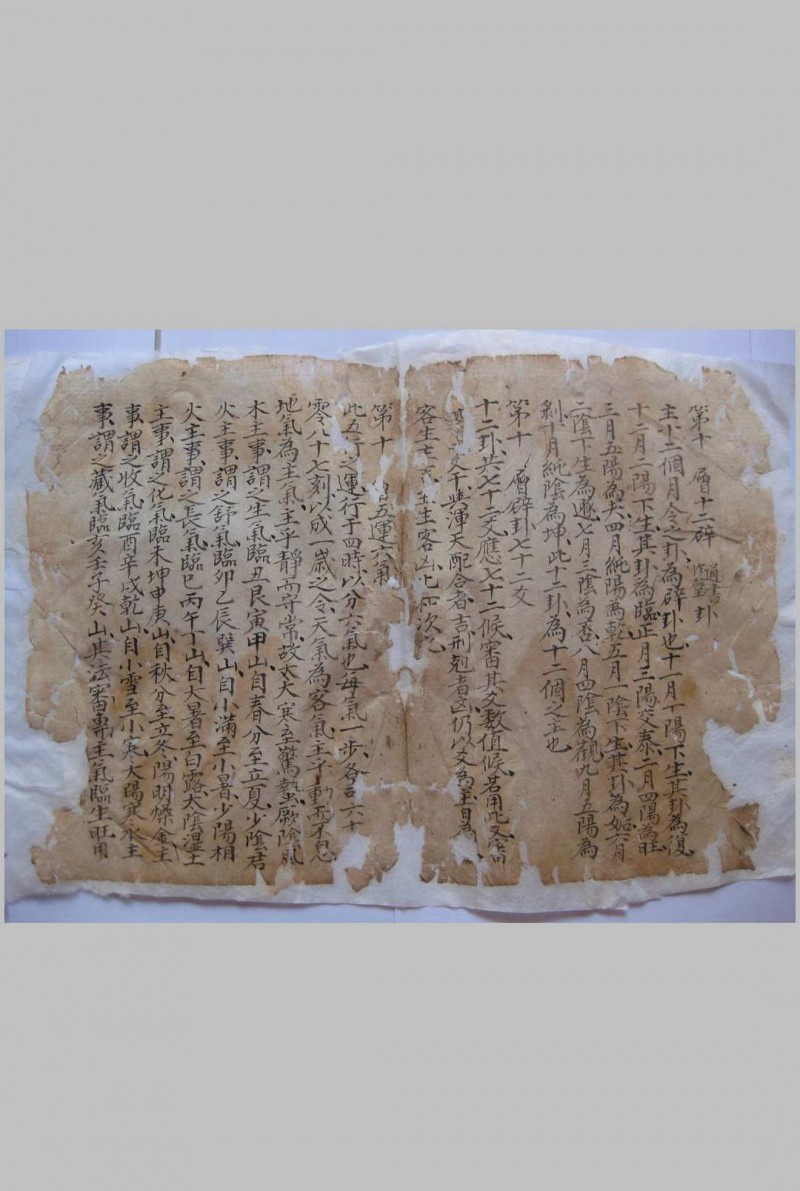 第十 層十二辟 通書作璧 卦
主十二個月令之卦為辟卦也十一月一陽下生其卦為復
十二月二陽下生其卦為臨正月三陽交泰二月四陽為旺
三月五陽為夬四月純陽為乾五月一陰下生其卦為姤六月
二陰下生為遯七月三陰為否八月四陰為觀九月五陽為
剝十月純陰為坤此十二卦為十二個之主也
第十 層辟卦七十二爻
十二卦共七十二爻應七十二候審其爻數值候若用此爻
爻干與渾天配合者吉刑剋者凶仍以爻為主日為
客生 主生客凶 次之
第十 層五運六氣
此五行之運行于四時以分六氣也每氣一步各 六十
零八十七刻以成一歲之令天氣為客氣主乎動而不息
地氣為主氣主乎靜而守常故大寒至驚蟄厥陰風
木主事謂之生氣臨丑艮寅甲山自春分至立夏少陰君
火主事謂之舒氣臨卯乙辰巽山自小滿至小暑少陽相
火主事謂之長氣臨巳丙午丁山自大暑至白露太陰濕土
主事謂之化氣臨未坤申庚山自秋分至立冬陽明燥金主
事謂之收氣臨酉辛戌乾山自小雪至小寒太陽寒水主
事謂之藏氣臨亥壬子癸山其法審專主氣臨生旺用